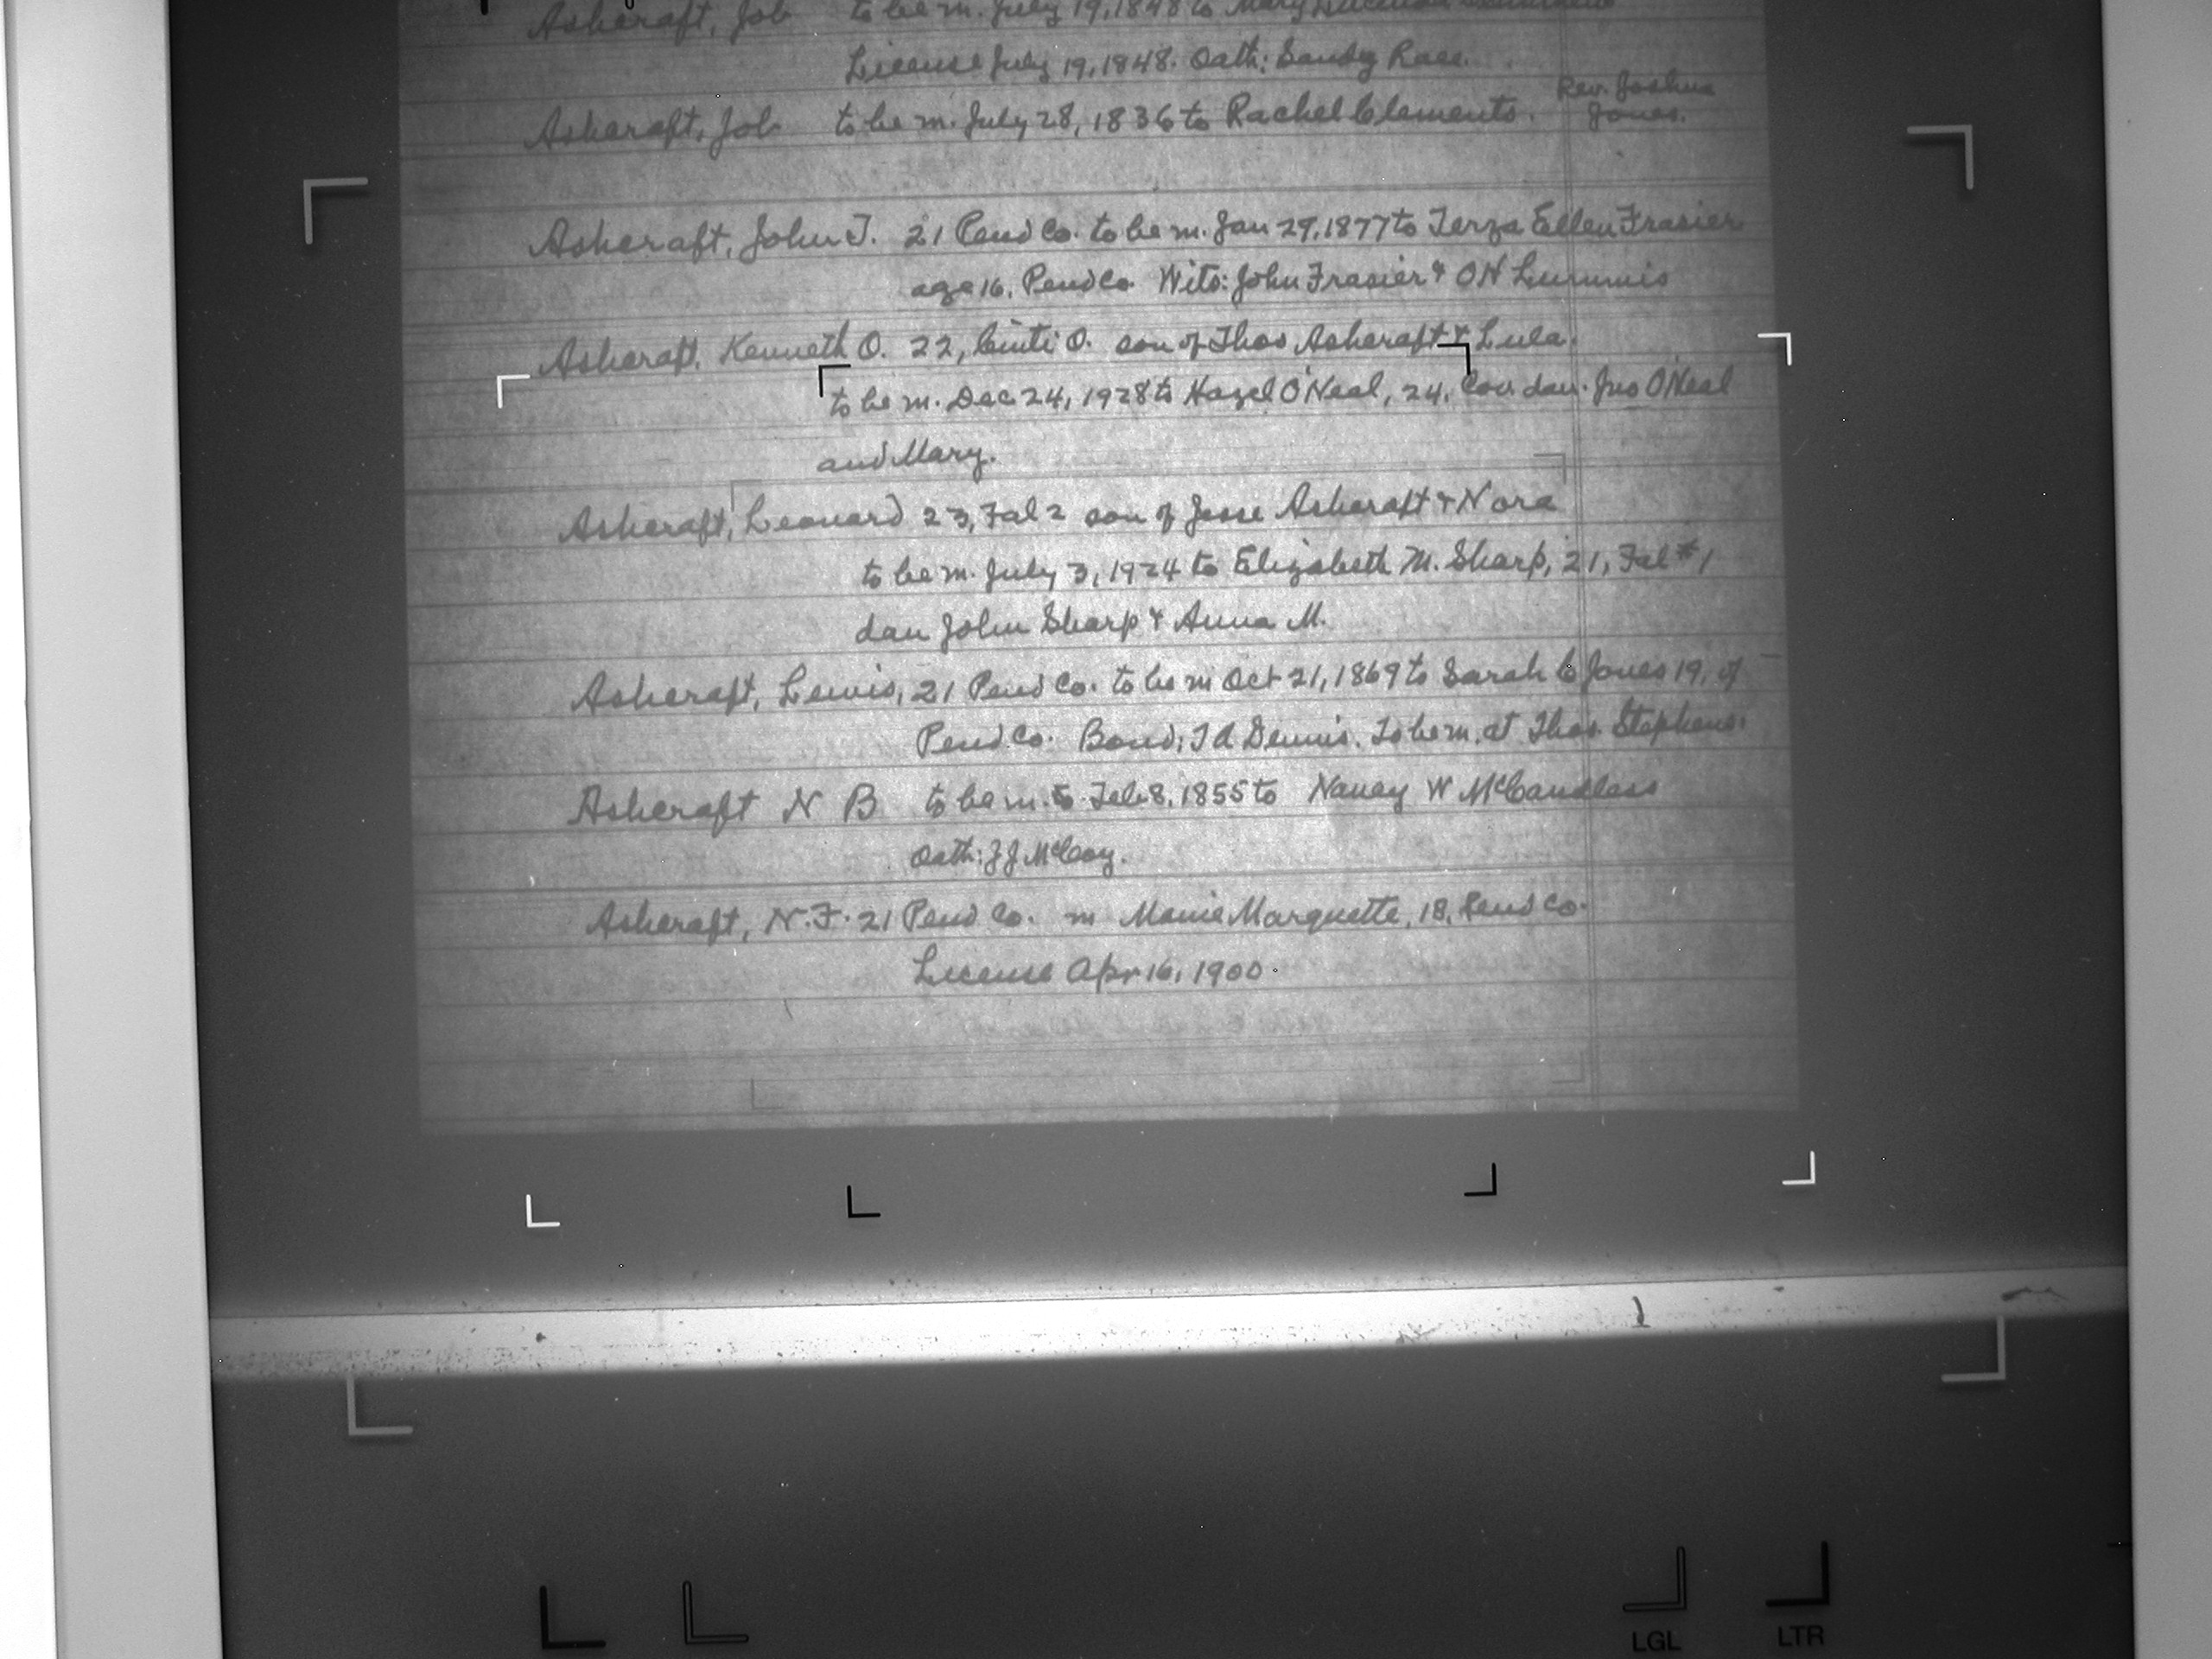 Ashcraft, Job to be m. July 19, 1848 to Mary
License July 19, 1848. Oath: Sandy Race.
Ashcraft, Job to be m. July 28, 1836 to Rachel Clements. Rev. Joshua Jones.
Ashcraft, John T. 21 Pend Co. to be m. Jan 29, 1877 to Terza Ellen Frasier
age 16, Pend Co. Wits: John Frasier & ON Lummis
Ashcraft, Kenneth O. 22, Cinti O. son of Thos Ashcraft & Lula.
to be m. Dec 24, 1928 to Hazel O'Neal, 24, Cov. dau. Jno O'Neal
and Mary.
Ashcraft, Leonard 23, Fal 2 son of Jesse Ashcraft & Nora
to be m. July 3, 1924 to Elizabeth M. Sharp, 21, Fal #1
dau John Sharp & Anna M.
Ashcraft, Lewis, 21 Pend Co. to be m Oct 21, 1869 to Sarah C Jones 19, of
Pend. Co. Bond, T A Dennis. To be m. at Thos. Stephens.
Ashcraft N B to be m. Feb 8, 1855 to Nancy W McCandless
Oath: J J McCoy.
Ashcraft, N. F. 21 Pend Co. m Mamie Marquette, 18, Pend Co.
License Apr 16, 1900.
LGL LTR